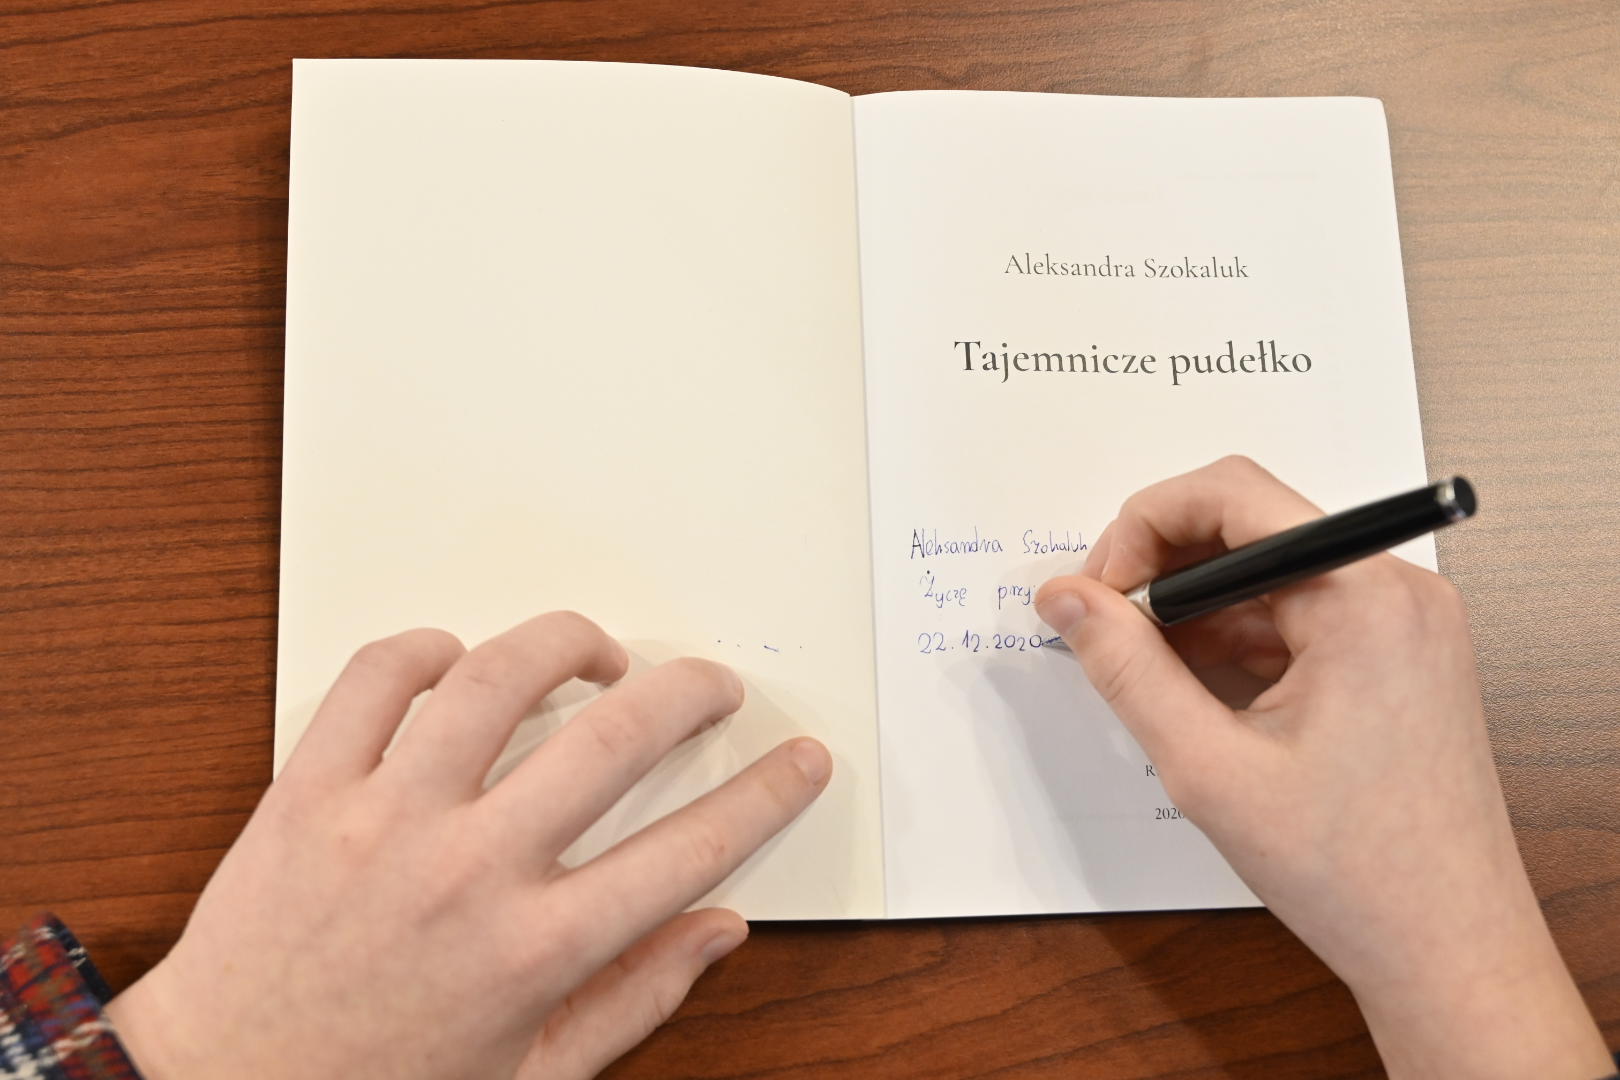 Aleksandra Szokaluk
Tajemnicze pudełko
Aleksandra Szokaluk
Życzę
22.12.2020
2020